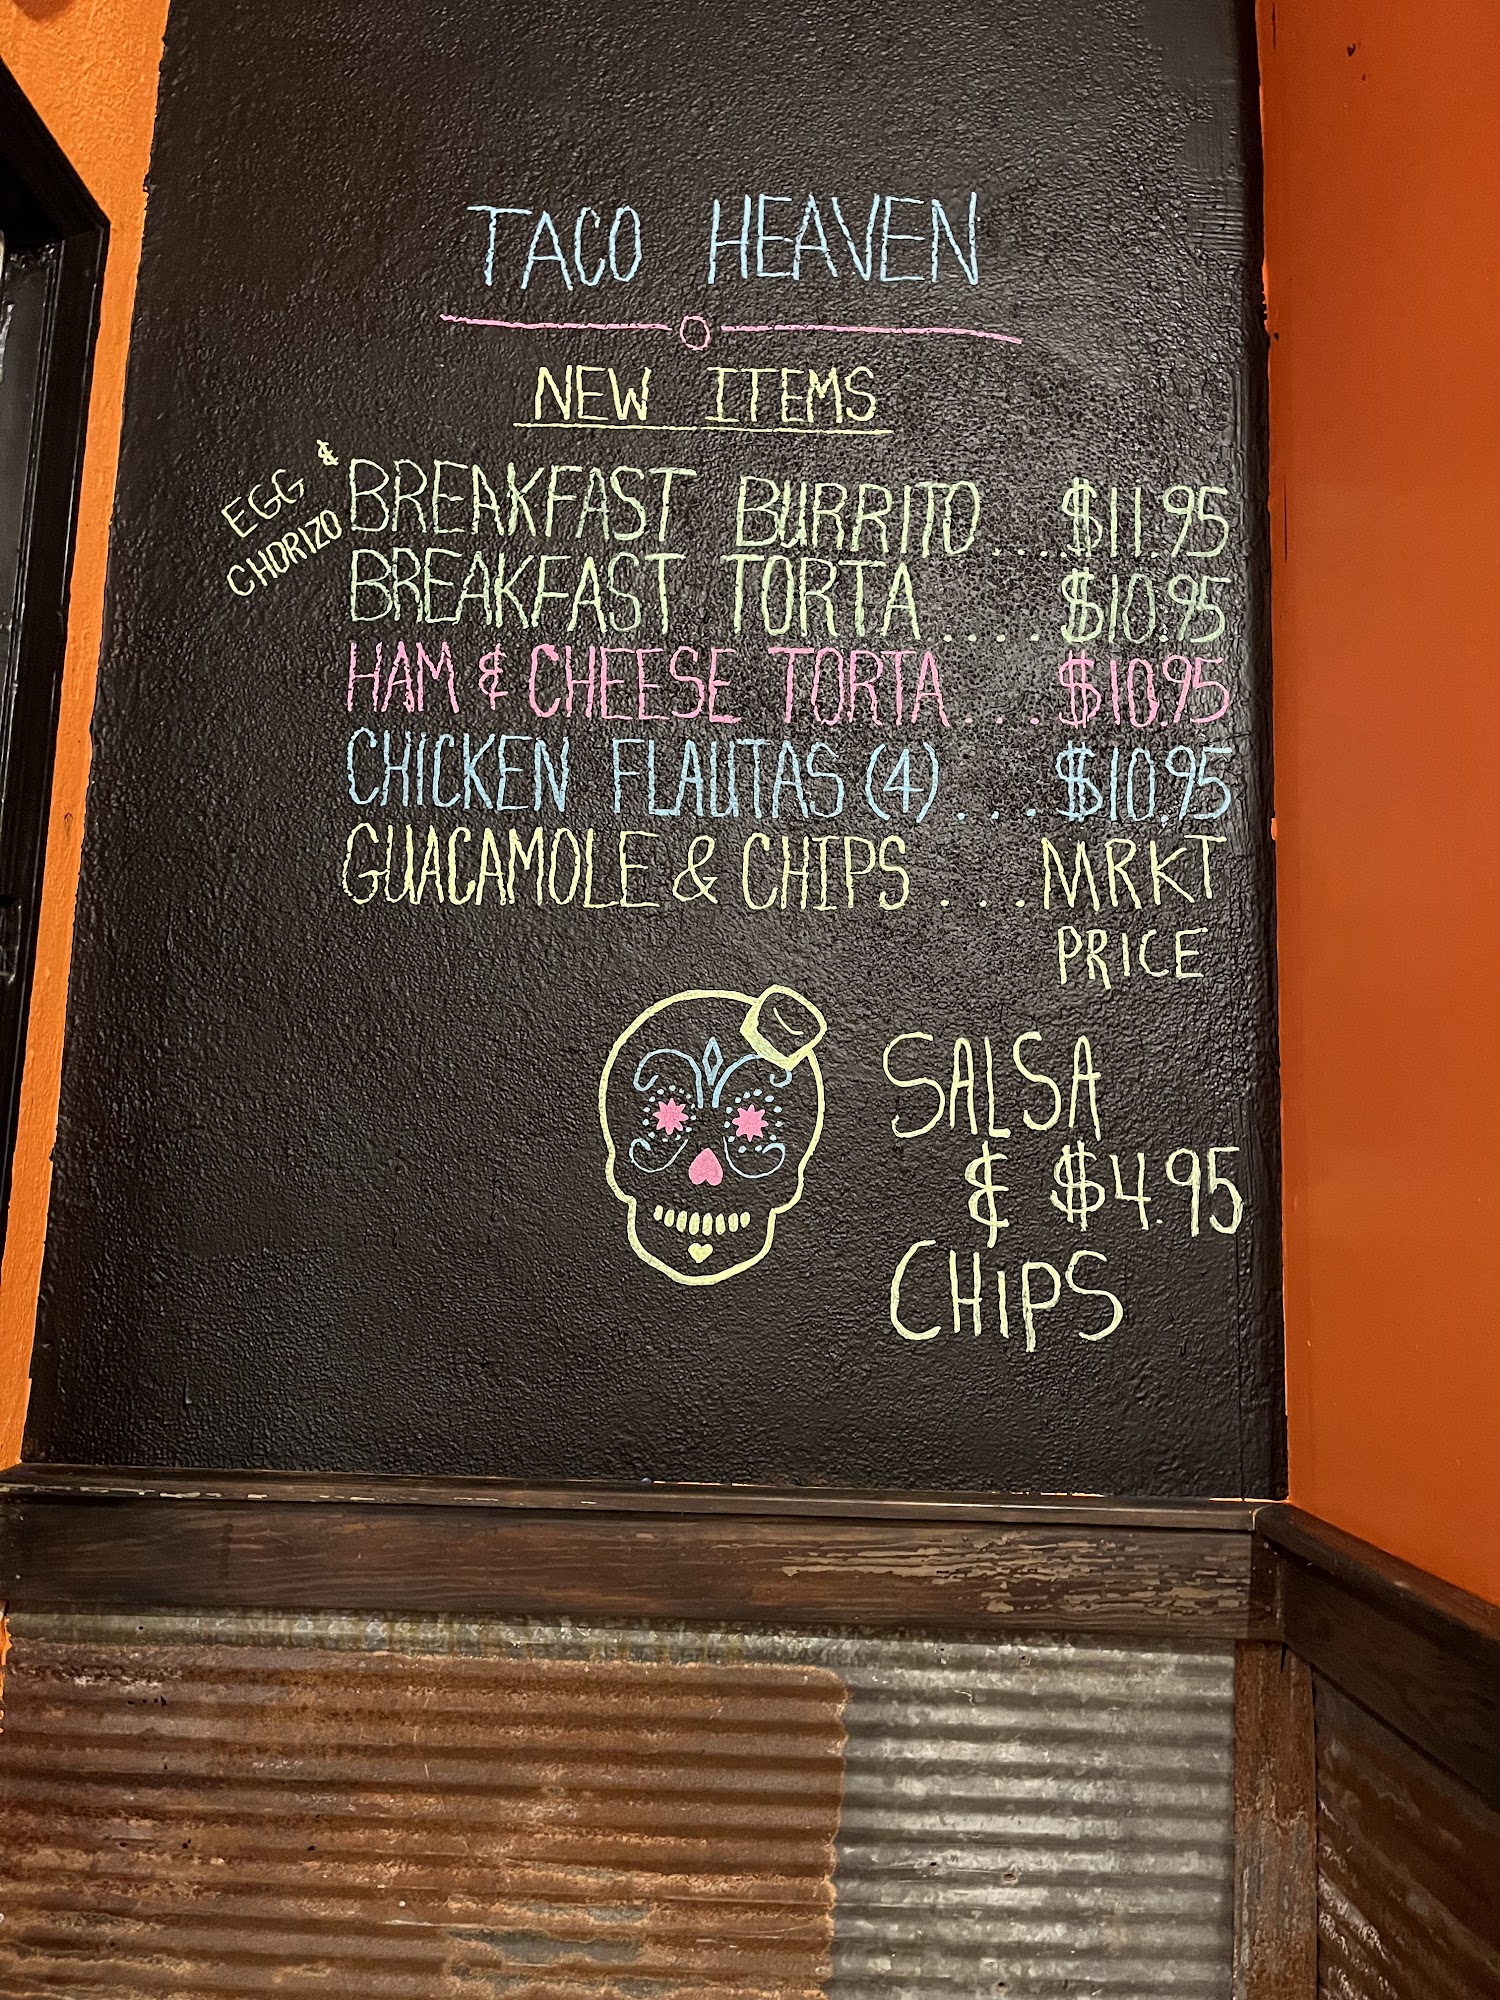 TACO HEAVEN
NEW ITEMS
EGG &
CHORIZO
BREAKFAST BURRITO....$11.95
BREAKFAST TORTA....$10.95
HAM & CHEESE TORTA...$10.95
CHICKEN FLAUTAS (4)...$10.95
GUACAMOLE & CHIPS....MRKT
PRICE
SALSA
& $4.95
CHIPS